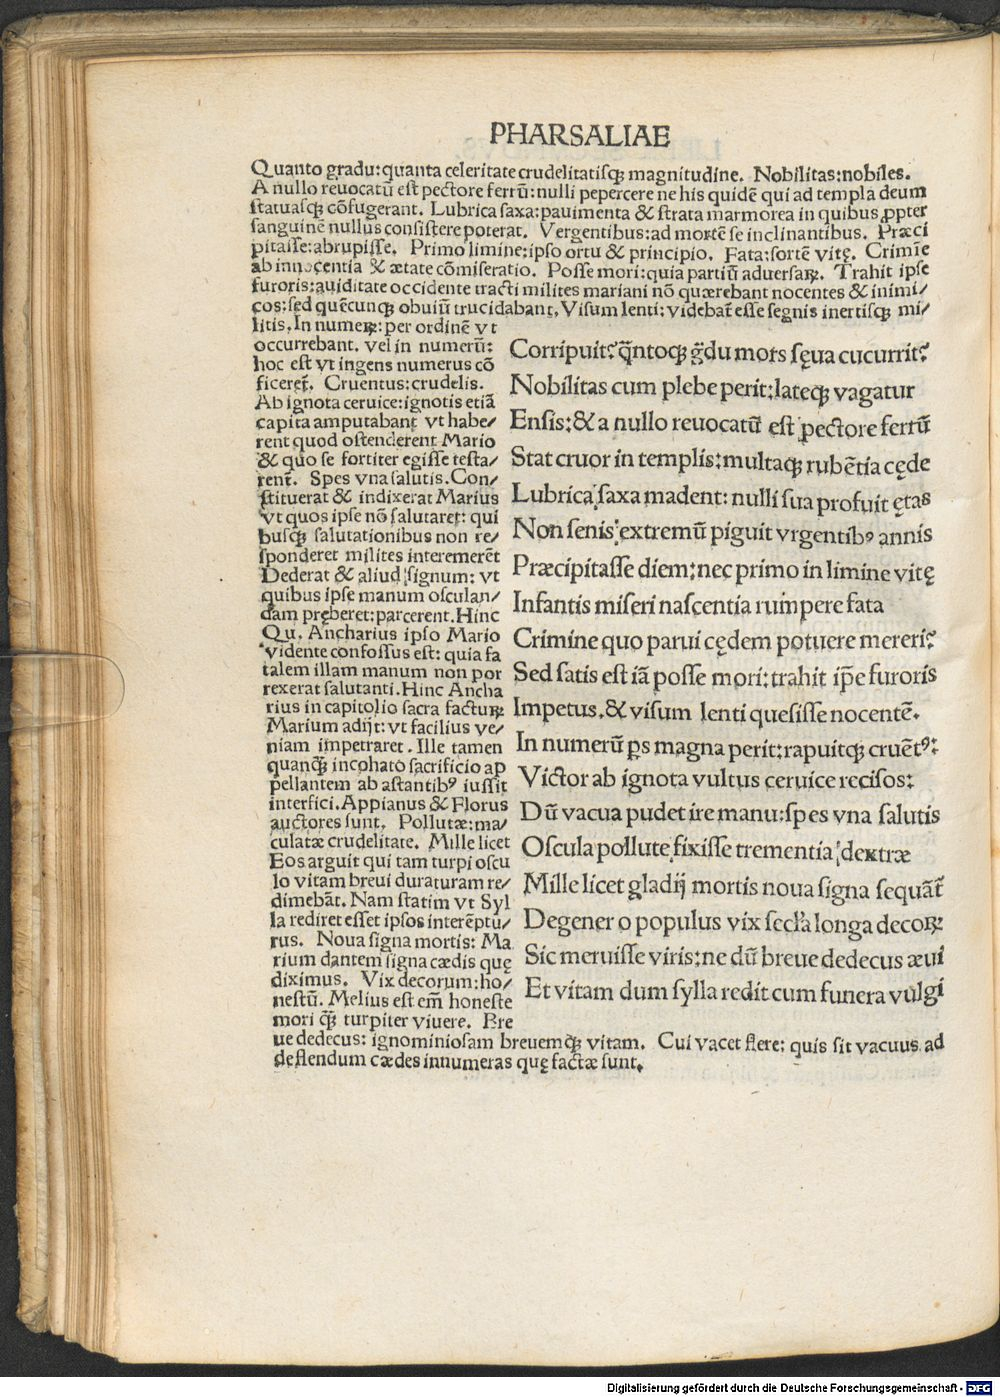 PHARSALIAE
Quanto gradu:quanta celeritate crudelitatisqꝫ magnitudine. Nobilitas:nobiles.
A nullo reuocatū est pectore ferrū:nulli pepercere ne his quidē qui ad templa deum
statuasqꝫ cōfugerant. Lubrica saxa:pauimenta & strata marmorea in quibus ꝓpter
sanguinē nullus consistere poterat. Vergentibus:ad mortē se inclinantibus. Præci
pitasse:abrupisse. Primo limine:ipso ortu & principio. Fata:sortē vitę. Crimīe
ab innocentia & ætate cōmiseratio. Posse mori:quia partiū aduersaꝝ. Trahit ipse
furoris:auiditate occidente tracti milites mariani nō quærebant nocentes & inimi/
cos:sed quēcunqꝫ obuiū trucidabant. Visum lenti:videbat̄ esse segnis inertisqꝫ mi/
litis. In numeꝝ:per ordinē vt
occurrebant. vel in numerū:
hoc est vt ingens numerus cō
ficeret̄. Cruentus:crudelis.
Ab ignota ceruice:ignotis etiā
capita amputabant vt habe/
rent quod ostenderent Mario
& quo se fortiter egisse testa/
rent̄. Spes vna salutis. Con/
stituerat & indixerat Marius
vt quos ipse nō salutaret: qui
busqꝫ salutationibus non re/
sponderet milites interemerēt
Dederat & aliud signum: vt
quibus ipse manum osculan/
dam pręberet:parcerent. Hinc
Qu. Ancharius ipso Mario
vidente confossus est: quia fa
talem illam manum non por
rexerat salutanti. Hinc Ancha
rius in capitolio sacra factuꝝ
Marium adijt: vt facilius ve/
niam impetraret. Ille tamen
quanqꝫ̄ incohato sacrificio ap
pellantem ab astantibꝰ iussit
interfici. Appianus & Florus
auctores sunt. Pollutæ:ma/
culatæ crudelitate. Mille licet
Eos arguit qui tam turpi oscu
lo vitam breui duraturam re/
dimebāt. Nam statim vt Syl
la rediret esset ipsos interēptu/
rus. Noua signa mortis: Ma
rium dantem signa cædis quę
diximus. Vix decorum:ho/
nestū. Melius est em̄ honeste
mori qꝫ̄ turpiter viuere. Bre
ue dedecus: ignominiosam breuemqꝫ vitam. Cui vacet flere: quis sit vacuus ad
deflendum cædes innumeras quę factæ sunt.
Corripuit? q̄ntoqꝫ g̃du mors sęua cucurrit?
Nobilitas cum plebe perit:lateqꝫ vagatur
Ensis:& a nullo reuocatū est pectore ferrū
Stat cruor in templis:multaqꝫ rubētia cęde
Lubrica saxa madent: nulli sua profuit ętas
Non senis extremū piguit vrgentibꝰ annis
Præcipitasse diem:nec primo in limine vitę
Infantis miseri nascentia rumpere fata
Crimine quo parui cędem potuere mereri?
Sed satis est iā posse mori:trahit ip̄e furoris
Impetus.& visum lenti quesisse nocentē.
In numerū ꝑs magna perit:rapuitqꝫ cruētꝰ:
Victor ab ignota vultus ceruice recisos:
Dū vacua pudet ire manu:spes vna salutis
Oscula pollute fixisse trementia dextræ
Mille licet gladij mortis noua signa sequāt̄
Degener o populus vix secl̄a longa decoꝝ
Sic meruisse viris:ne dū breue dedecus æui
Et vitam dum sylla redit cum funera vulgi
Digitalisierung gefördert durch die Deutsche Forschungsgemeinschaft - DFG